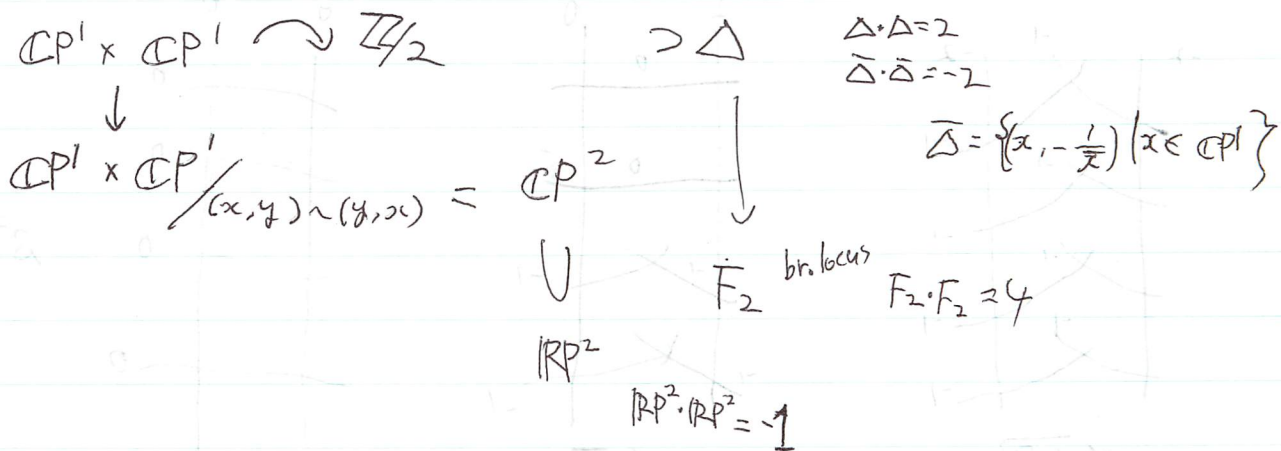 ℂP¹ × ℂP¹ ↷ ℤ/2 ⊃ Δ Δ·Δ=2
Δ̄·Δ̄=-2
↓ Δ̄ = {(x, -1/x̄) | x ∈ ℂP¹}
ℂP¹ × ℂP¹/(x,y)~(y,x) = ℂP² ↓
∪ F₂ br. locus F₂·F₂ = 4
ℝP²
ℝP²·ℝP² = -1